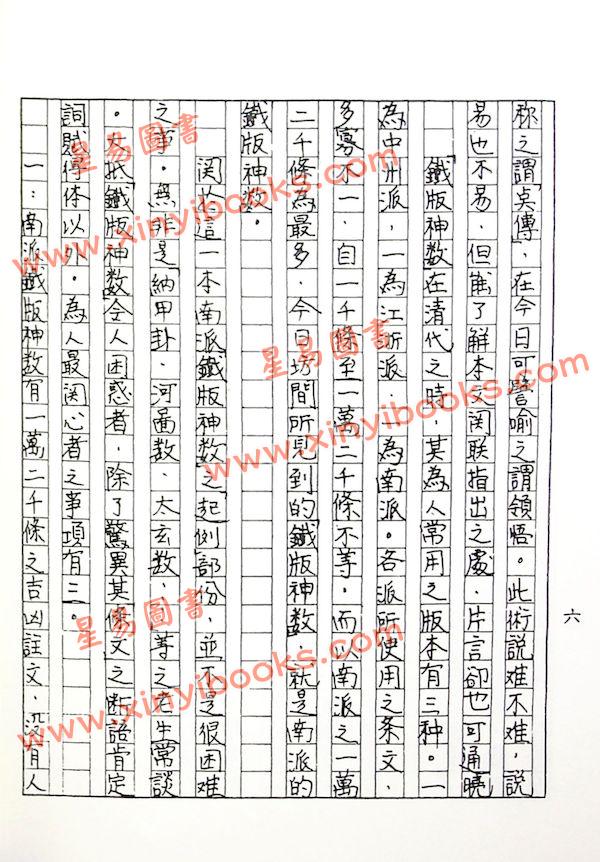 称之謂「真傳」，在今日可譬喻之謂領悟。此術説难不难，説
易也不易，但能了解本文関联指出之處，片言卻也可通曉
「鐵版神数」在清代之時，其為人常用之版本有三种。一
為中州派，一為江浙派，一為南派。各派所使用之条文，
多寡不一，自一千條至一萬二千條不等。而以南派之一萬
二千條為最多，今日坊間所見到的「鐵版神数」，就是南派的
鐵版神数。
関於這一本南派「鐵版神数」之「起例」部份，並不是很困难
之事，無非是「納甲卦、河圖数、太玄数」等之老生常談
。大抵「鐵版神数」令人困惑者，除了驚異其「條文」之断語肯定
詞賦俱体以外，為人最関心者之事項有三。
一：南派鐵版神数有一萬二千條之吉凶註文，没有人
六
星易圖書
www.xinyibooks.com
星易圖書
www.xinyibooks.com
星易圖書
www.xinyibooks.com